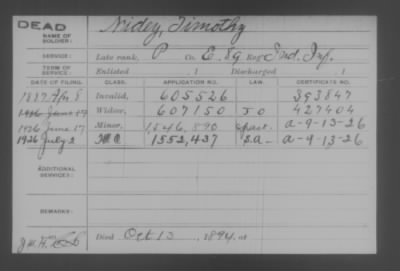 DEAD
NAME OF SOLDIER: Nidey, Timothy
SERVICE: Late rank, P Co. E. 89 Reg Ind. Inf.
TERM OF SERVICE: Enlisted , 1 Discharged , 1
DATE OF FILING. CLASS. APPLICATION NO. LAW. CERTIFICATE NO.
1887 Apr 8 Invalid, 605526 393847
Widow, 607150 J O 427404
1926 June 17 Minor, 1,546,890 a-9-13-26
1926 July 2 1552,437 S.a- a-9-13-26
ADDITIONAL SERVICES:
REMARKS:
Died Oct 13, 1894, at